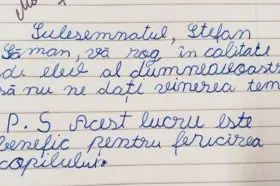 Sulesemnatul, Ștefan
Să man, vă rog în calitate
de elev al dumneavoastr
să nu ne dați vinerea tem
P. S Acest lucru este
benefic pentru fericirea
copilului.